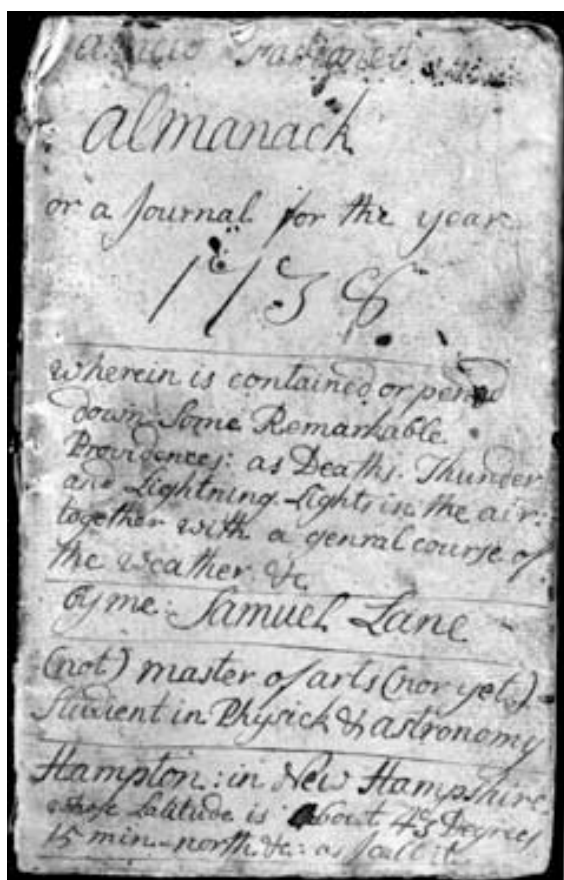 almanack
or a Journal for the year
1738
wherein is contained or pen'd
down Some Remarkable
Providences: as Deaths. Thunder
and Lightning. Lights in the air:
together with a genral course of
the weather &c
By me: Samuel Lane
(not) master of arts (nor yet)
Student in Physick & astronomy
Hampton: in New Hampshire
whose Latitude is about 43 Degrees
15 min- north &c: as I call it